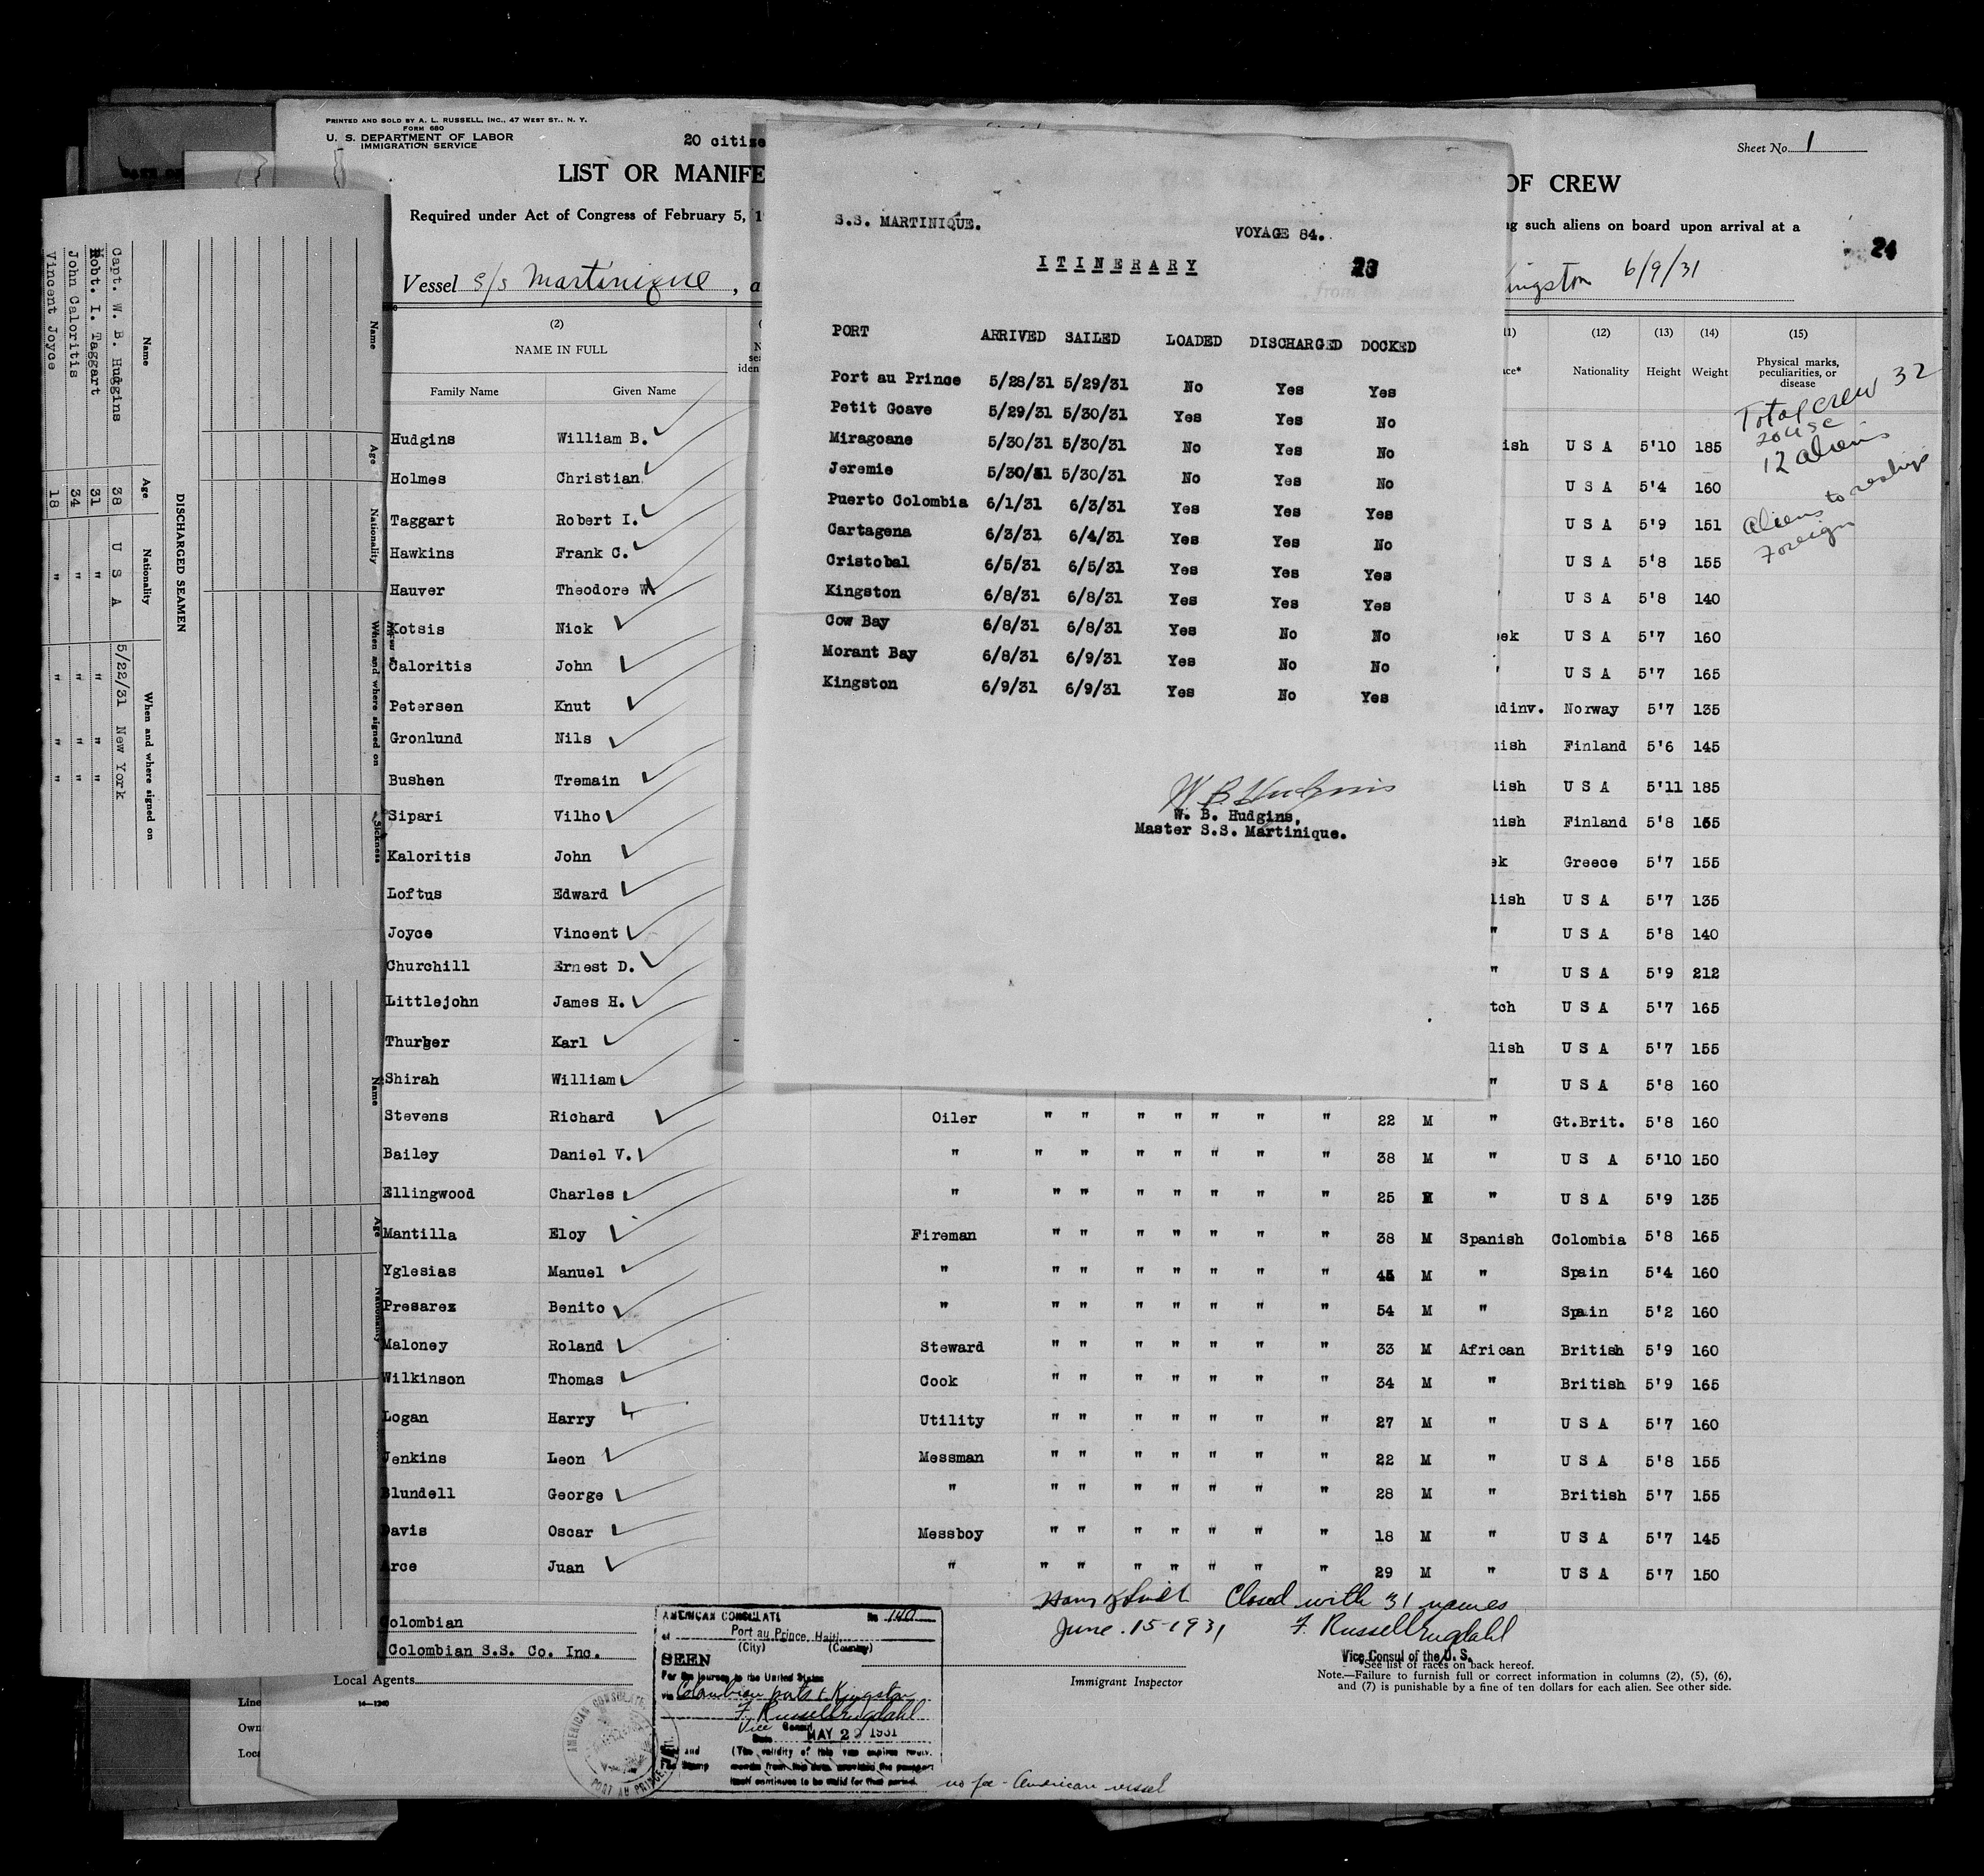 PRINTED AND SOLD BY A. L. RUSSELL, INC., 47 WEST ST., N. Y.
FORM 680
U. S. DEPARTMENT OF LABOR
IMMIGRATION SERVICE
20 citize
Sheet No. 1
LIST OR MANIFE
OF CREW
Required under Act of Congress of February 5, 1
ng such aliens on board upon arrival at a
24
Vessel S/S Martinique, a
ingston 6/9/31
(2)
NAME IN FULL
Family Name Given Name
(12) (13) (14) (15)
Nationality Height Weight Physical marks, peculiarities, or disease
Total crew 32
20 USC
12 aliens
aliens to reship
Foreign
S.S. MARTINIQUE. VOYAGE 84.
ITINERARY 23
PORT ARRIVED SAILED LOADED DISCHARGED DOCKED
Port au Prince 5/28/31 5/29/31 No Yes Yes
Petit Goave 5/29/31 5/30/31 Yes Yes No
Miragoane 5/30/31 5/30/31 No Yes No
Jeremie 5/30/31 5/30/31 No Yes No
Puerto Colombia 6/1/31 6/3/31 Yes Yes Yes
Cartagena 6/3/31 6/4/31 Yes Yes No
Cristobal 6/5/31 6/5/31 Yes Yes Yes
Kingston 6/8/31 6/8/31 Yes Yes Yes
Cow Bay 6/8/31 6/8/31 Yes No No
Morant Bay 6/8/31 6/9/31 Yes No No
Kingston 6/9/31 6/9/31 Yes No Yes
W B Hudgins
W. B. Hudgins,
Master S.S. Martinique.
Hudgins William B. ish U S A 5'10 185
Holmes Christian U S A 5'4 160
Taggart Robert I. U S A 5'9 151
Hawkins Frank C. U S A 5'8 155
Hauver Theodore W. " U S A 5'8 140
Kotsis Nick ek U S A 5'7 160
Caloritis John " U S A 5'7 165
Petersen Knut dinv. Norway 5'7 135
Gronlund Nils ish Finland 5'6 145
Bushen Tremain lish U S A 5'11 185
Sipari Vilho ish Finland 5'8 155
Kaloritis John ek Greece 5'7 155
Loftus Edward lish U S A 5'7 135
Joyce Vincent " U S A 5'8 140
Churchill Ernest D. " U S A 5'9 212
Littlejohn James H. tch U S A 5'7 165
Thurber Karl lish U S A 5'7 155
Shirah William " U S A 5'8 160
Stevens Richard Oiler " " " " " " " 22 M " Gt.Brit. 5'8 160
Bailey Daniel V. " " " " " " " " 38 M " U S A 5'10 150
Ellingwood Charles " " " " " " " " 25 M " U S A 5'9 135
Mantilla Eloy Fireman " " " " " " " 38 M Spanish Colombia 5'8 165
Yglesias Manuel " " " " " " " " 45 M " Spain 5'4 160
Presarez Benito " " " " " " " " 54 M " Spain 5'2 160
Maloney Roland Steward " " " " " " " 33 M African British 5'9 160
Wilkinson Thomas Cook " " " " " " " 34 M " British 5'9 165
Logan Harry Utility " " " " " " " 27 M " U S A 5'7 160
Jenkins Leon Messman " " " " " " " 22 M " U S A 5'8 155
Blundell George " " " " " " " " 28 M " British 5'7 155
Davis Oscar Messboy " " " " " " " 18 M " U S A 5'7 145
Arce Juan " " " " " " " " 29 M " U S A 5'7 150
Closed with 31 names
June 15-1931
F. Russell Engdahl
Vice Consul of the U. S.
Colombian
Colombian S.S. Co. Inc.
Local Agents
14—1240
Immigrant Inspector
*See list of races on back hereof.
Note.—Failure to furnish full or correct information in columns (2), (5), (6),
and (7) is punishable by a fine of ten dollars for each alien. See other side.
AMERICAN CONSULATE No
at Port au Prince, Haiti
(City) (Country)
SEEN
For the journey to the United States
via Colombian ports & Kingston
F. Russell Engdahl
Vice Consul
Date MAY 29 1931
(The validity of this visa expires
months from this date, provided the passport
itself continues to be valid for that period.
no fee - American vessel
AMERICAN CONSULATE
PORT AU PRINCE
Line
Own
Loca
DISCHARGED SEAMEN
Name Age Nationality When and where signed on
Capt. W. B. Hudgins 38 U S A 5/22/31 New York
Robt. I. Taggart 31 " " "
John Caloritis 34 " " "
Vincent Joyce 18 " " "
Name Age Nationality When and where signed on
Sickness
Name Age Nationality